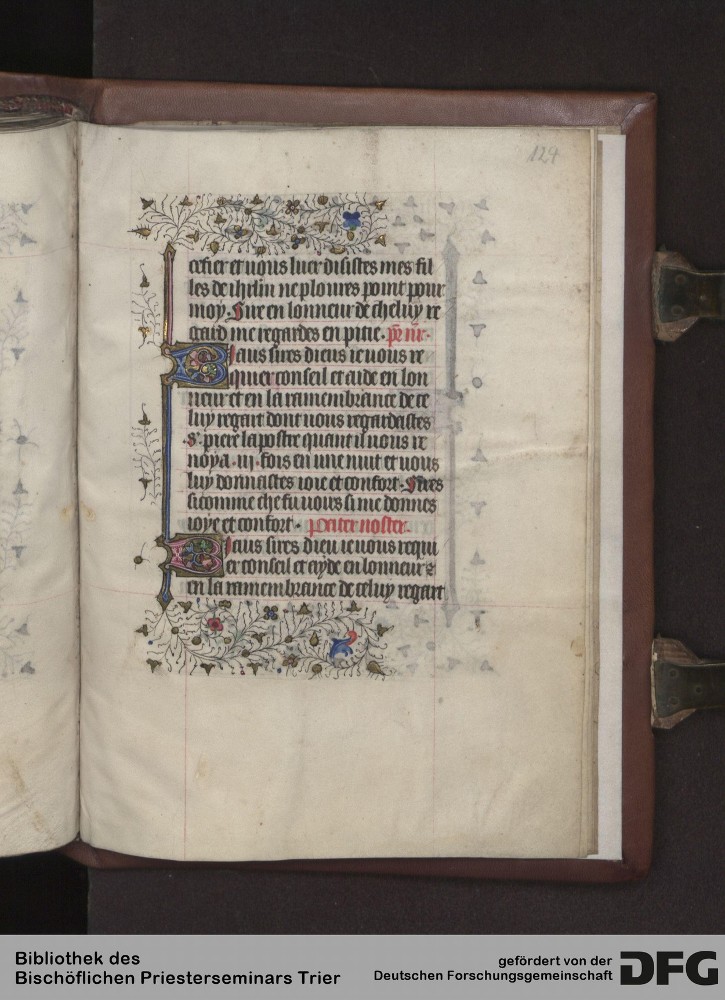 124
cefier et uous leur disistes mes fil
les de ihrlm ne ploures point pour
moy. Sire en lonneur de cheluy re
gaud me regardes en pitie. pr nr.
Biaus sires dieus ie uous re
quier conseil et aide en lon
neur et en la ramembrance de ce
luy regart dont uous regardastes
.s. piere lapostre quant il uous re
noya .iii. fois en une nuit et uous
luy donnastes ioie et confort. Sires
si comme che fu uoirs si me donnes
ioye et confort. Pater noster.
Biaus sires dieu ie uous requi
er conseil et ayde en lonneur et
en la ramembrance de celuy regart
Bibliothek des
Bischöflichen Priesterseminars Trier
gefördert von der
Deutschen Forschungsgemeinschaft
DFG